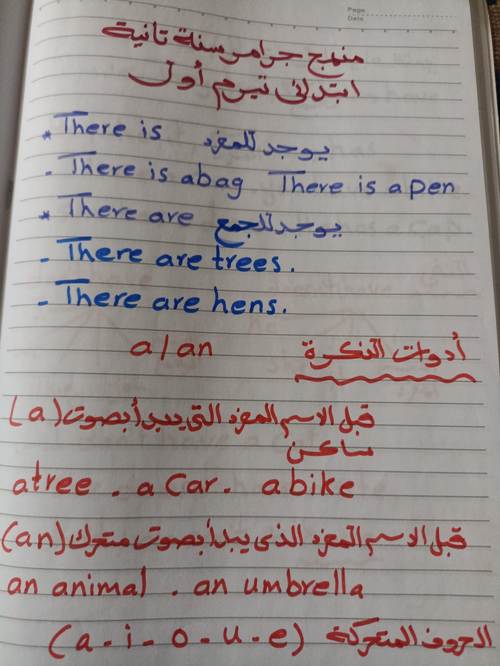 Page
Date
منهج جرامر سنة تانية
ابتدائى تيرم أول
* There is يوجد للمفرد
- There is a bag There is a pen
* There are يوجد للجمع
- There are trees.
- There are hens.
a / an أدوات النكرة
(a) قبل الاسم المفرد التى يبدأ بصوت
ساكن
a tree . a car . a bike
(an) قبل الاسم المفرد الذى يبدأ بصوت متحرك
an animal . an umbrella
الحروف المتحركة (a - i - o - u - e)